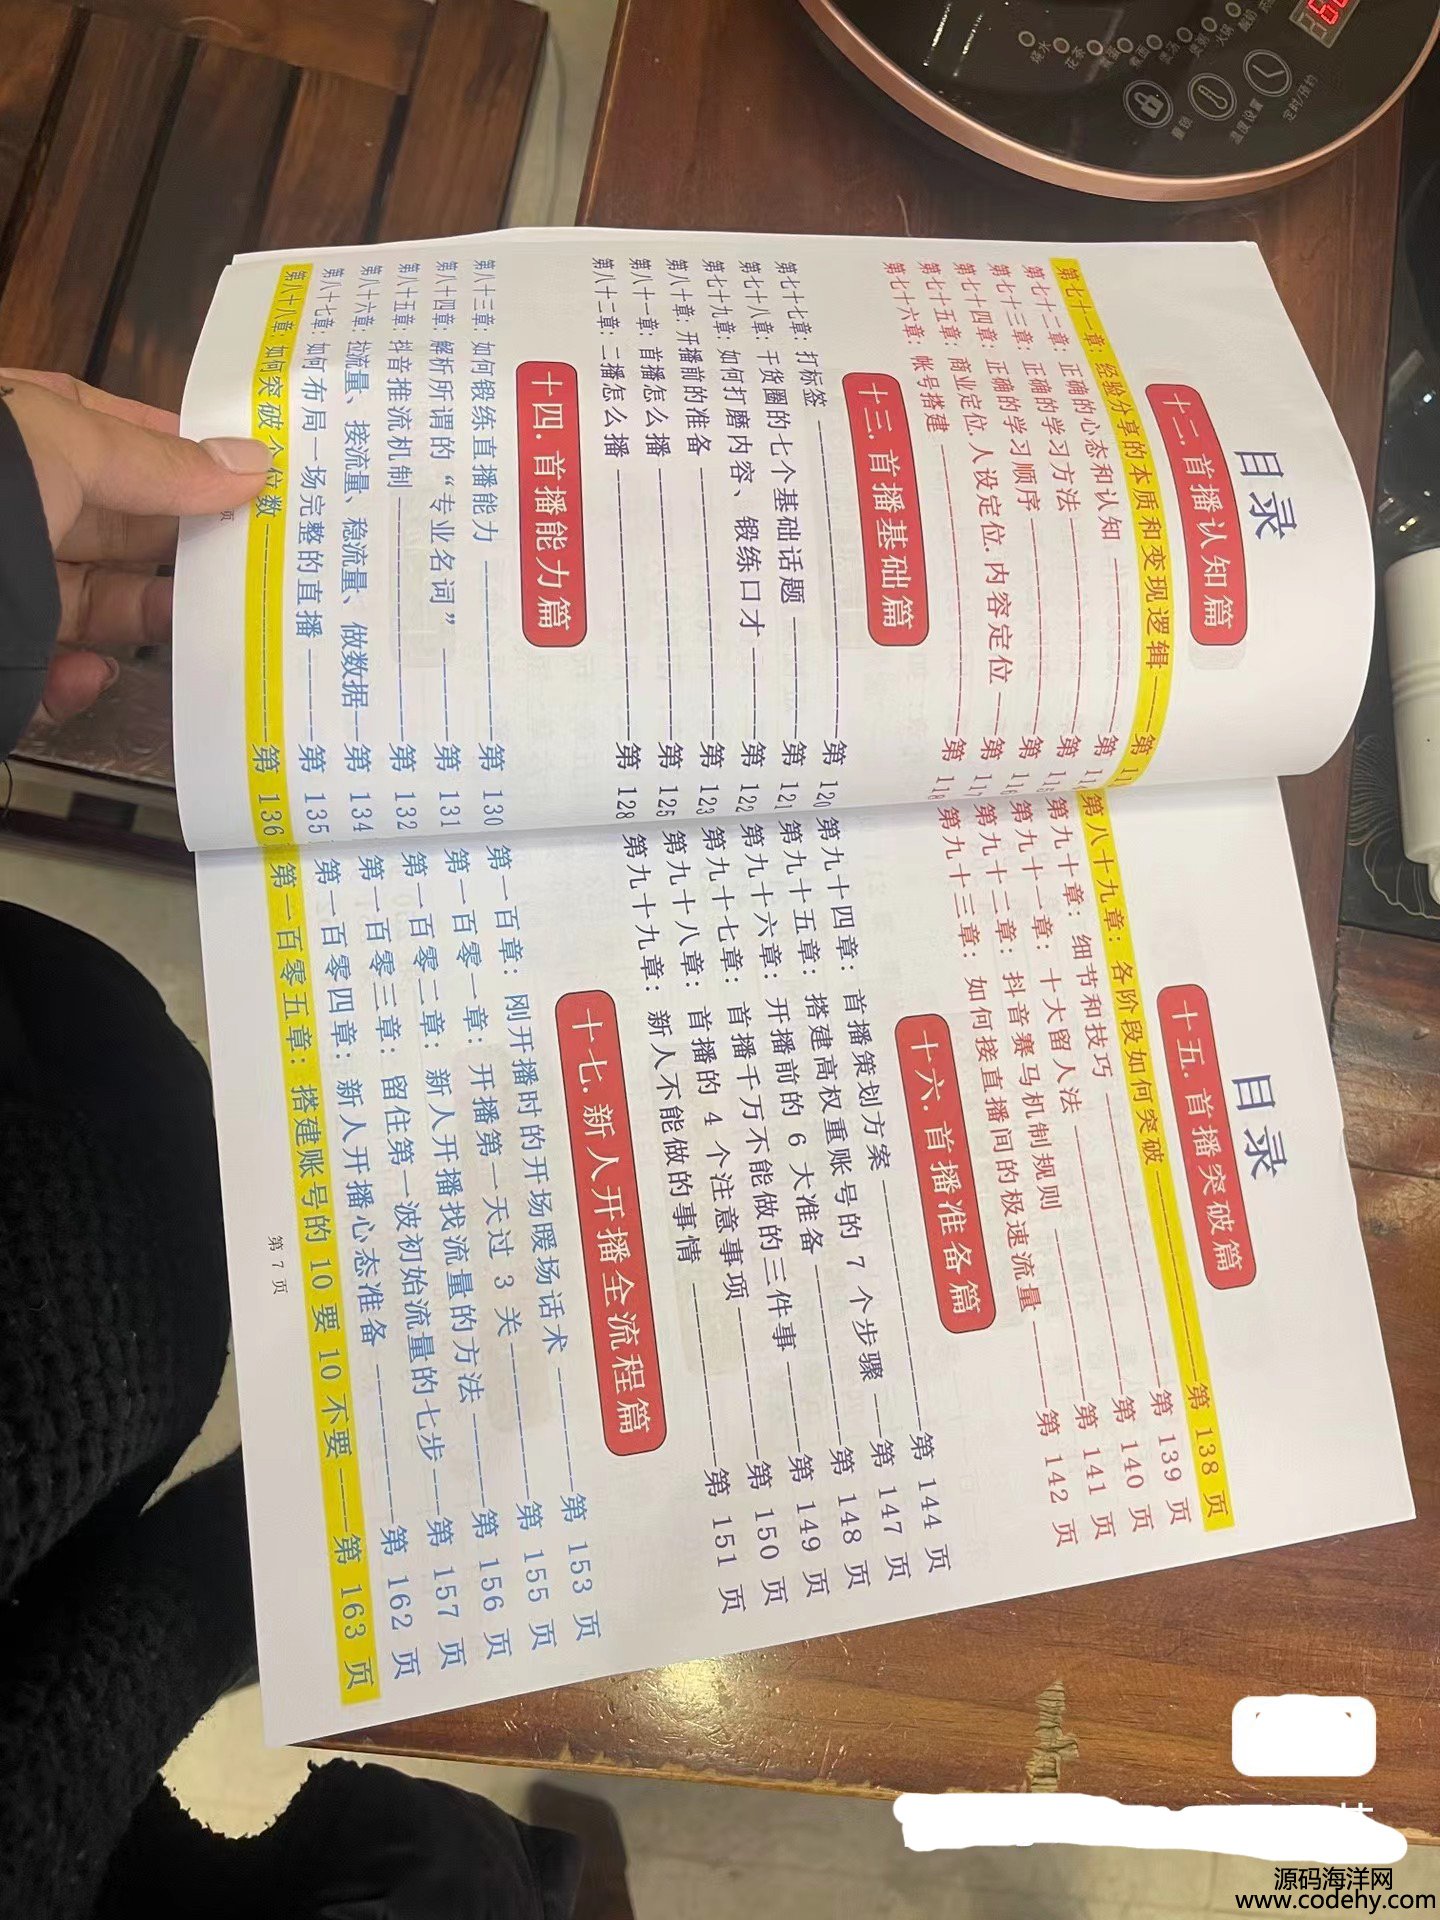 目录
十二.首播认知篇
第七十一章：经验分享的本质和变现逻辑————第 1
第七十二章：正确的心态和认知————第 11
第七十三章：正确的学习方法————第 115
第七十四章：正确的学习顺序————第 116
第七十五章：商业定位.人设定位.内容定位——第 117
第七十六章：帐号搭建————第 118
十三.首播基础篇
第七十七章：打标签————第 120
第七十八章：干货圈的七个基础话题————第 121
第七十九章：如何打磨内容、锻练口才————第 122
第八十章：开播前的准备————第 123
第八十一章：首播怎么播————第 125
第八十二章：二播怎么播————第 128
十四.首播能力篇
第八十三章：如何锻练直播能力————第 130
第八十四章：解析所谓的“专业名词”————第 131
第八十五章：抖音推流机制————第 132
第八十六章：拉流量、接流量、稳流量、做数据——第 134
第八十七章：如何布局一场完整的直播————第 135
第八十八章：如何突破个位数————第 136
页
目录
十五.首播突破篇
第八十九章：各阶段如何突破————第 138 页
第九十章：细节和技巧————第 139 页
第九十一章：十大留人法————第 140 页
第九十二章：抖音赛马机制规则————第 141 页
第九十三章：如何接直播间的极速流量————第 142 页
十六.首播准备篇
第九十四章：首播策划方案————第 144 页
第九十五章：搭建高权重账号的 7 个步骤——第 147 页
第九十六章：开播前的 6 大准备————第 148 页
第九十七章：首播千万不能做的三件事————第 149 页
第九十八章：首播的 4 个注意事项————第 150 页
第九十九章：新人不能做的事情————第 151 页
十七.新人开播全流程篇
第一百章：刚开播时的开场暖场话术————第 153 页
第一百零一章：开播第一天过 3 关————第 155 页
第一百零二章：新人开播找流量的方法————第 156 页
第一百零三章：留住第一波初始流量的七步——第 157 页
第一百零四章：新人开播心态准备————第 162 页
第一百零五章：搭建账号的 10 要 10 不要——第 163 页
第 7 页
烧水
花茶
童锁
温度设置
定时/预约
源码海洋网
www.codehy.com